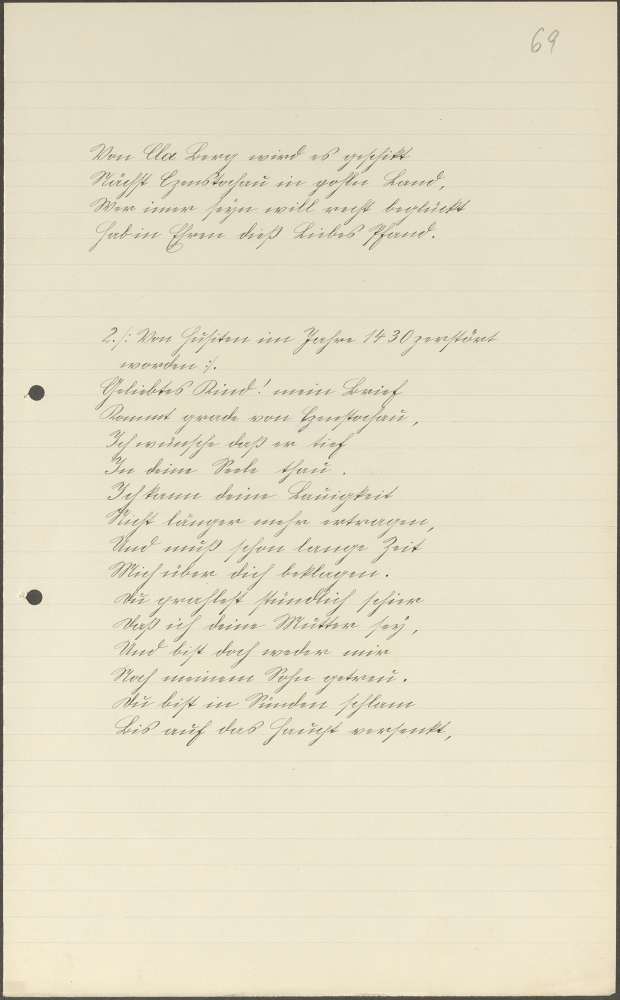 69
Von Cla Berg wird es geschikt
Nächst Czenstochau in pohln Land,
Wer imer seyn will recht beglückt
Hab in Ehren dieß Liebes Pfand.
2. /: Von Husiten im Jahre 1430 zerstört
worden :/.
Geliebtes Kind! mein Brief
Kommt grade von Czenstochau,
Ich wünsche daß er tief
In deine Seele thau.
Ich kann deine Lauigkeit
Nicht länger mehr ertragen,
Und muß schon lange Zeit
Mich über dich beklagen.
Du prahlest stündlich schier
Daß ich deine Mutter sey,
Und bist doch weder mir
Noch meinem Sohn getreu.
Du bist in Sünden schlam
Bis auf das Haupt versenkt,